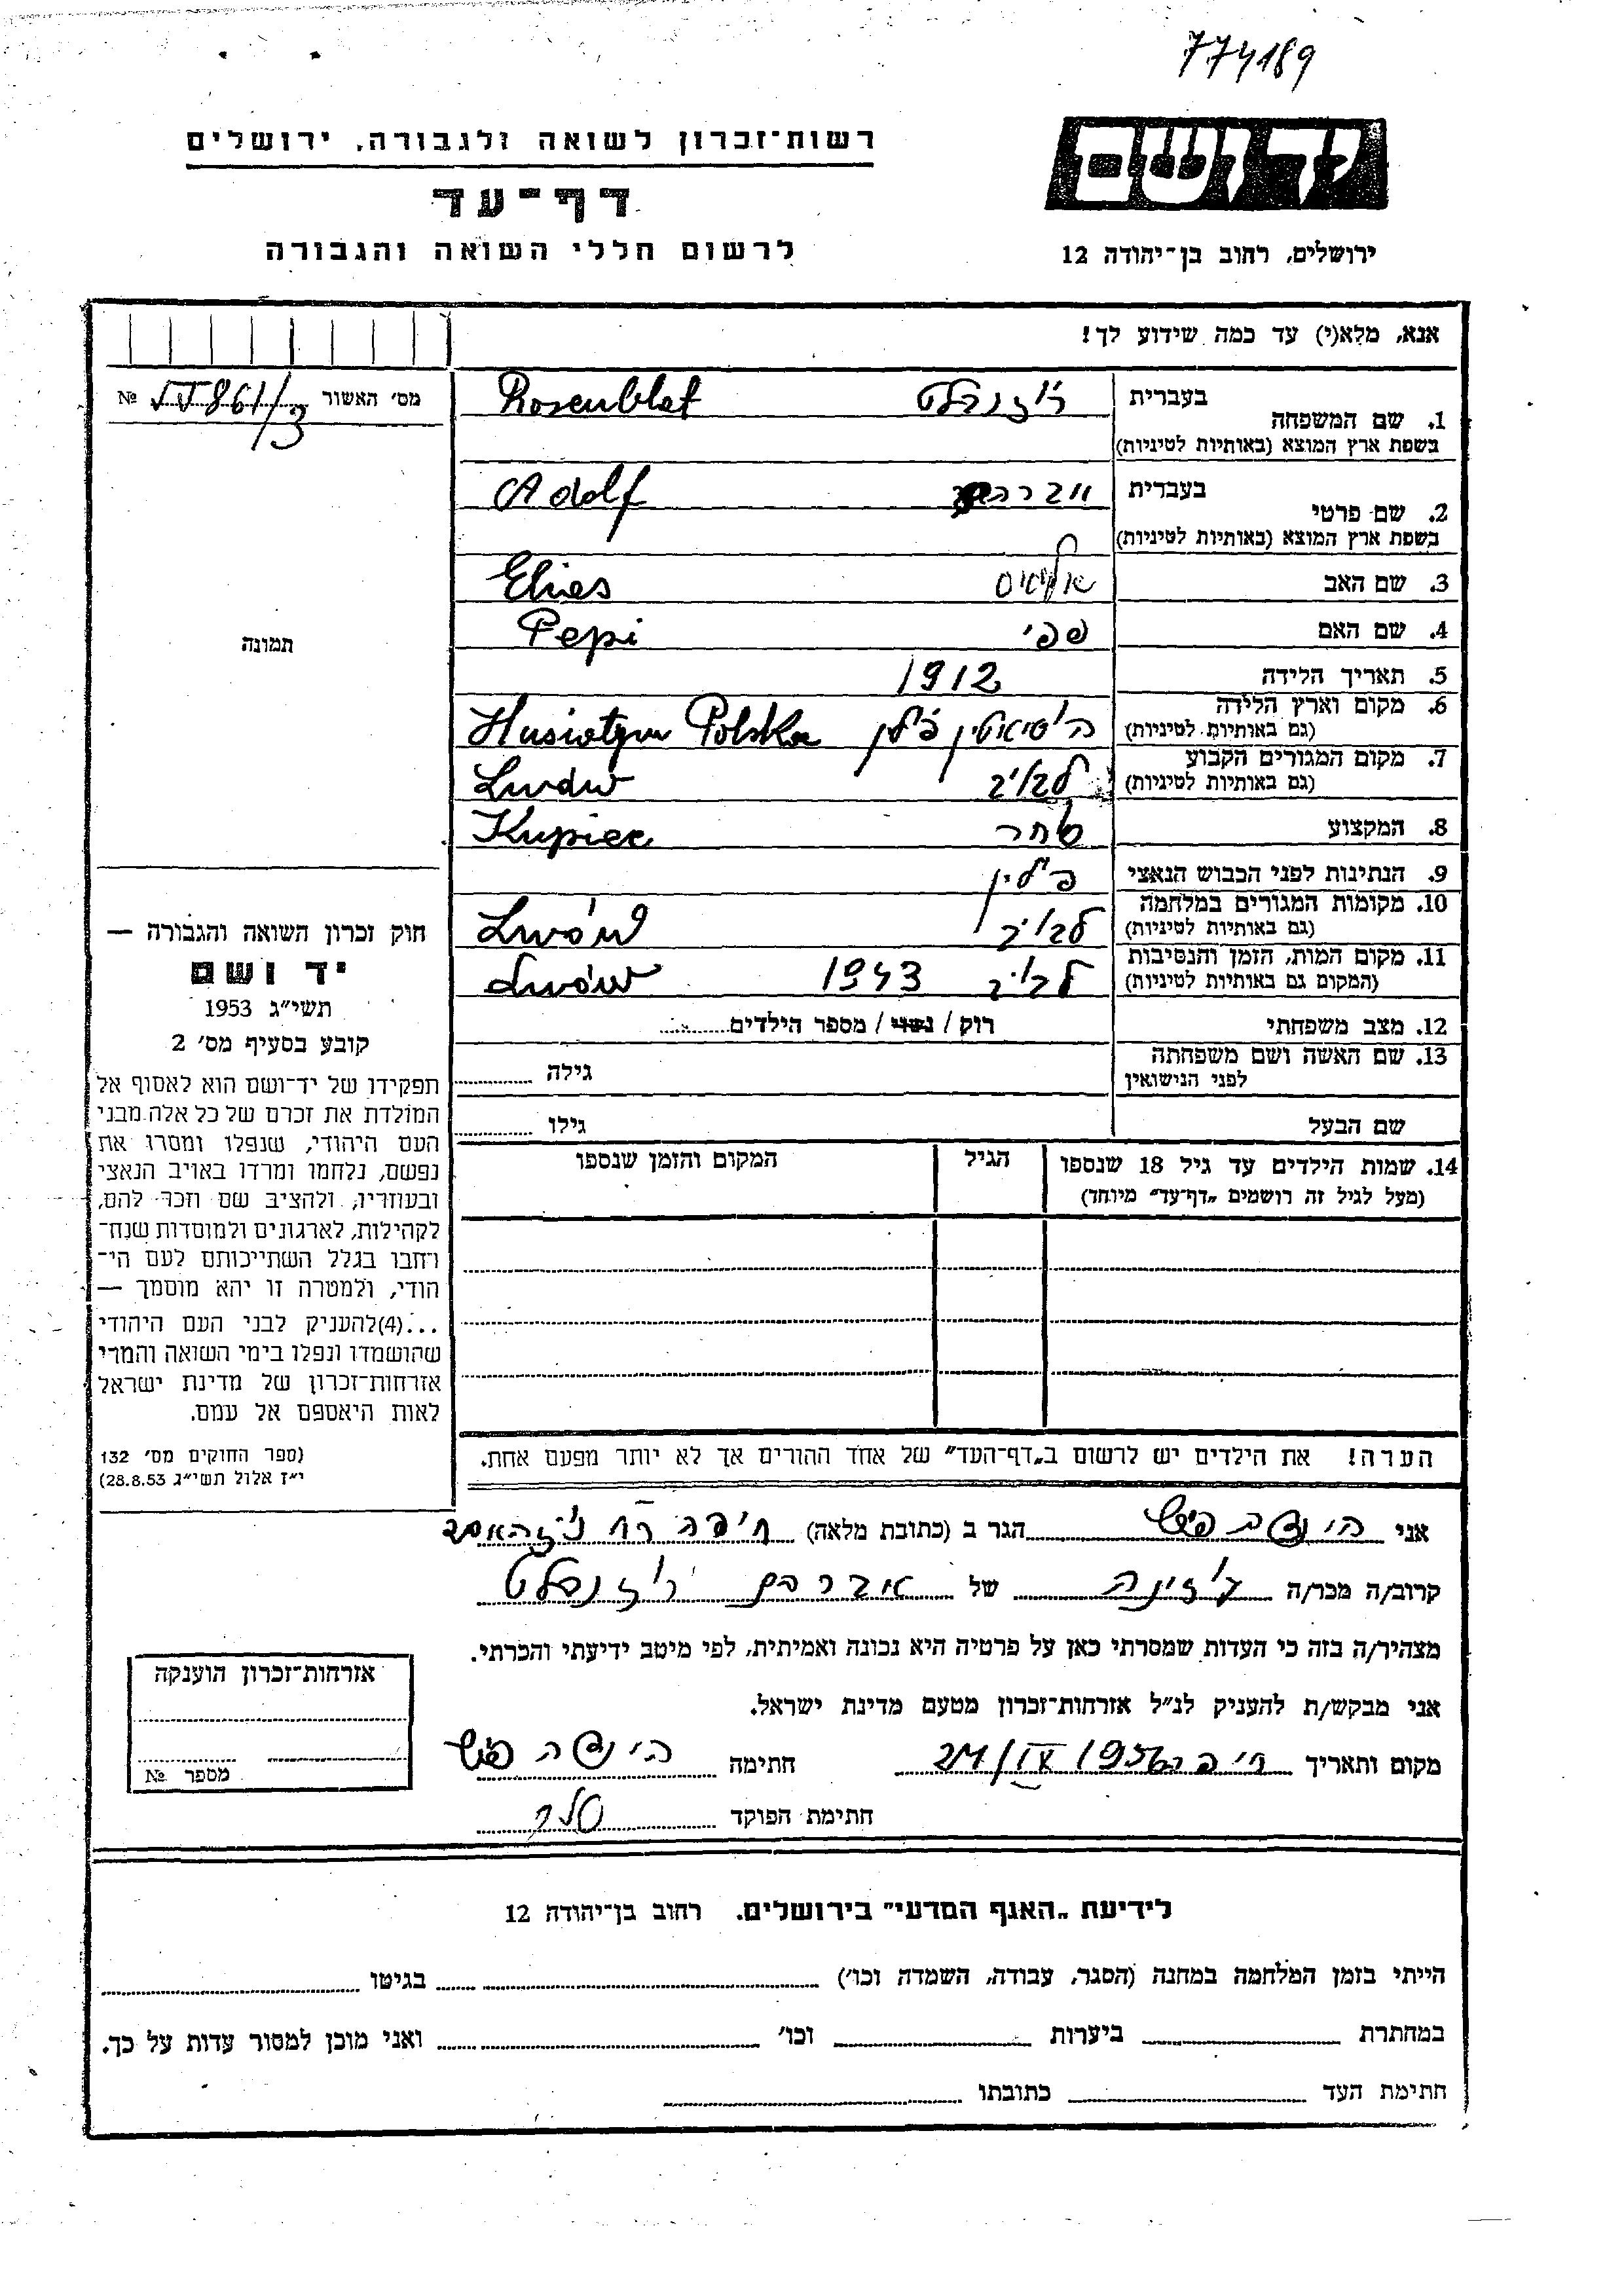 774189
רשות־זכרון לשואה ולגבורה, ירושלים
יד ושם
דף־עד
לרשום חללי השואה והגבורה
ירושלים, רחוב בן־יהודה 12
אנא, מלא(י) עד כמה שידוע לך!
מס׳ האשור №
1. שם המשפחה
בעברית רוזנבלט
בשפת ארץ המוצא (באותיות לטיניות) Rosenblat
2. שם פרטי
בעברית אברהם
בשפת ארץ המוצא (באותיות לטיניות) Adolf
3. שם האב אליאס Elies
4. שם האם פפי Pepi
5. תאריך הלידה 1912
6. מקום וארץ הלידה הוסיאטין פולין Husiatyn Polska
(גם באותיות לטיניות)
7. מקום המגורים הקבוע לבוב Lwów
(גם באותיות לטיניות)
8. המקצוע סוחר Kupiec
9. הנתינות לפני הכבוש הנאצי פולין
10. מקומות המגורים במלחמה לבוב Lwów
(גם באותיות לטיניות)
11. מקום המות, הזמן והנסיבות לבוב 1943 Lwów
(המקום גם באותיות לטיניות)
12. מצב משפחתי רוק / נשוי / מספר הילדים
13. שם האשה ושם משפחתה גילה
לפני הנישואין
שם הבעל גילו
14. שמות הילדים עד גיל 18 שנספו הגיל המקום והזמן שנספו
(מעל לגיל זה רושמים „דף־עד״ מיוחד)
הערה! את הילדים יש לרשום ב„דף־העד״ של אחד ההורים אך לא יותר מפעם אחת.
תמונה
חוק זכרון השואה והגבורה —
יד ושם
תשי״ג 1953
קובע בסעיף מס׳ 2
תפקידו של יד־ושם הוא לאסוף אל
המולדת את זכרם של כל אלה מבני
העם היהודי, שנפלו ומסרו את
נפשם, נלחמו ומרדו באויב הנאצי
ובעוזריו, ולהציב שם וזכר להם,
לקהילות, לארגונים ולמוסדות שנח־
רחבו בגלל השתייכותם לעם הי־
הודי, ולמטרה זו יהא מוסמך —
...(4) להעניק לבני העם היהודי
שהושמדו ונפלו בימי השואה והמרי
אזרחות־זכרון של מדינת ישראל
לאות היאספם אל עמם.
(ספר החוקים מס׳ 132
י״ז אלול תשי״ג 28.8.53)
אני הינדה פיש הגר ב (כתובת מלאה) חיפה רח
קרוב/ה מכר/ה של אברהם רוזנבלט
מצהיר/ה בזה כי העדות שמסרתי כאן על פרטיה היא נכונה ואמיתית, לפי מיטב ידיעתי והכרתי.
אני מבקש/ת להעניק לנ״ל אזרחות־זכרון מטעם מדינת ישראל.
מקום ותאריך חיפה 21/IX 1956 חתימה הינדה פיש
חתימת הפוקד
אזרחות־זכרון הוענקה
מספר №
לידיעת „האגף המדעי״ בירושלים, רחוב בן־יהודה 12
הייתי בזמן המלחמה במחנה (הסגר, עבודה, השמדה וכו׳) בגיטו
במחתרת ביערות וכו׳ ואני מוכן למסור עדות על כך.
חתימת העד כתובתו